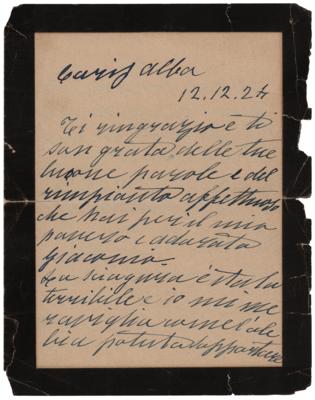 Caris Alba
12.12.24
Ti ringrazio è ti
son grata delle tue
buone parole e del
rimpianto affettuoso
che hai per il mio
povero e adorato
Giacomo.
La sciagura è stata
terribile e io mi me
raviglia come l'ab
bia potuta sopportare